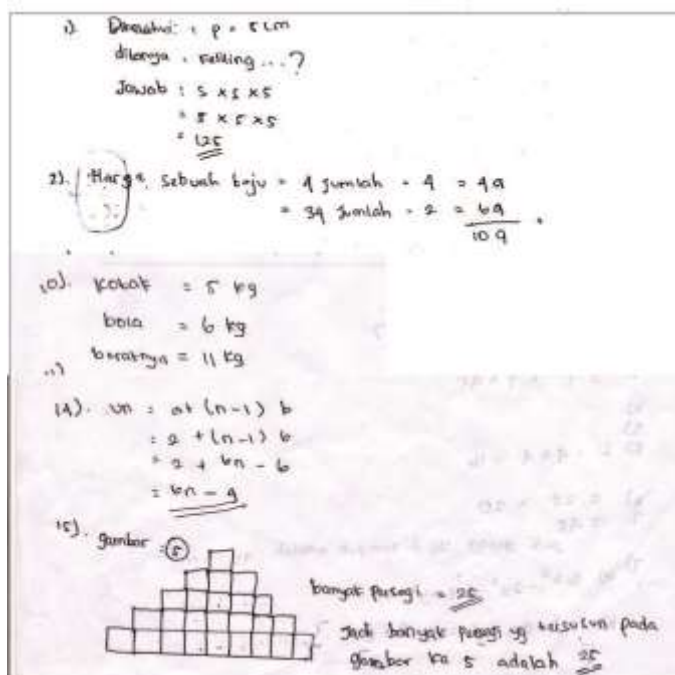 1). Diketahui : p = 5 cm
ditanya : keliling ... ?
Jawab : 5 x 5 x 5
= 5 x 5 x 5
= 125
2). Harga sebuah baju = 9 Jumlah = 4 = 4a
= 3a Jumlah = 2 = 6a
10 a
10). kotak = 5 kg
bola = 6 kg
beratnya = 11 kg
11)
14). Un = a + (n-1) b
= 2 + (n-1) 6
= 2 + 6n - 6
= 6n - 4
15). gambar 5
banyak persegi = 25
Jadi banyak persegi yg tersusun pada
gambar ke 5 adalah 25